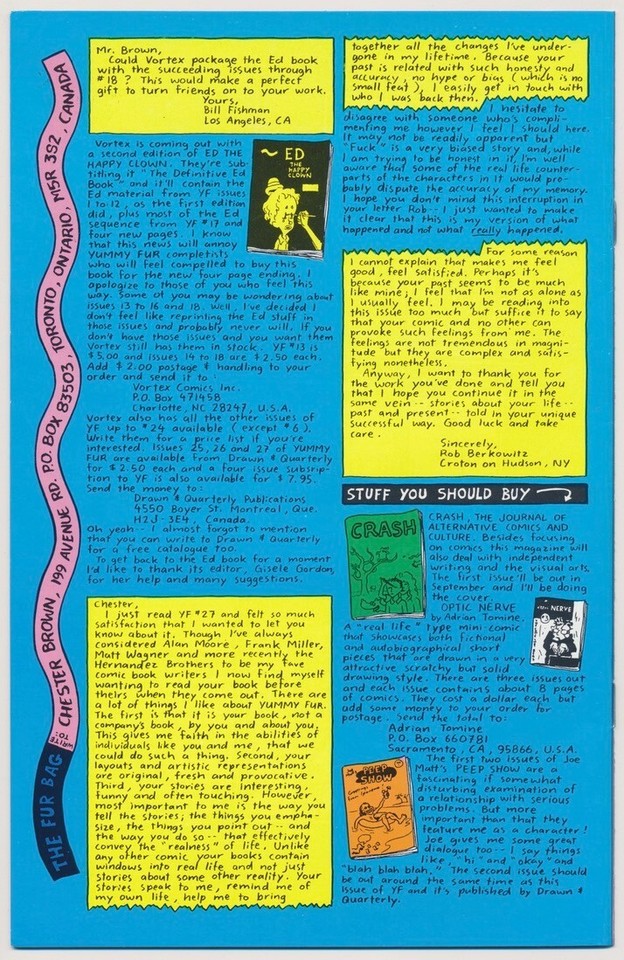 THE FUR BAG
WRITE TO:
CHESTER BROWN, 199 AVENUE RD. P.O. BOX 83503, TORONTO, ONTARIO, M5R 3S2, CANADA
Mr. Brown,
Could Vortex package the Ed book
with the succeeding issues through
#18? This would make a perfect
gift to turn friends on to your work.
Yours,
Bill Fishman
Los Angeles, CA
Vortex is coming out with
a second edition of ED THE
HAPPY CLOWN. They're sub-
titling it "The Definitive Ed
Book" and it'll contain the
Ed material from YF issues
1 to 12, as the first edition
did, plus most of the Ed
sequence from YF #17 and
four new pages. I know
that this news will annoy
YUMMY FUR completists
who will feel compelled to buy this
book for the new four page ending. I
apologize to those of you who feel this
way. Some of you may be wondering about
issues 13 to 16 and 18. Well, I've decided I
don't feel like reprinting the Ed stuff in
those issues and probably never will. If you
don't have those issues and you want them
Vortex still has them in stock. YF #13 is
$5.00 and issues 14 to 18 are $2.50 each.
Add $2.00 postage & handling to your
order and send it to:
Vortex Comics Inc.
P.O. Box 471458
Charlotte, NC 28247, U.S.A.
Vortex also has all the other issues of
YF up to #24 available (except #6).
Write them for a price list if you're
interested. Issues 25, 26 and 27 of YUMMY
FUR are available from Drawn & Quarterly
for $2.50 each and a four issue subscrip-
tion to YF is also available for $7.95.
Send the money to:
Drawn & Quarterly Publications
4550 Boyer St. Montreal, Que.
H2J-3E4, Canada.
Oh yeah -- I almost forgot to mention
that you can write to Drawn & Quarterly
for a free catalogue too.
To get back to the Ed book for a moment
I'd like to thank its editor, Gisele Gordon,
for her help and many suggestions.
ED
THE
HAPPY
CLOWN
Chester,
I just read YF #27 and felt so much
satisfaction that I wanted to let you
know about it. Though I've always
considered Alan Moore, Frank Miller,
Matt Wagner and more recently the
Hernandez Brothers to be my fave
comic book writers I now find myself
wanting to read your book before
theirs when they come out. There are
a lot of things I like about YUMMY FUR.
The first is that it is your book, not a
company's book, by you and about you.
This gives me faith in the abilities of
individuals like you and me, that we
could do such a thing. Second, your
layouts and artistic representations
are original, fresh and provocative.
Third, your stories are interesting,
funny and often touching. However,
most important to me is the way you
tell the stories; the things you empha-
size, the things you point out -- and
the way you do so -- that effectively
convey the "realness" of life. Unlike
any other comic your books contain
windows into real life and not just
stories about some other reality. Your
stories speak to me, remind me of
my own life, help me to bring
together all the changes I've under-
gone in my lifetime. Because your
past is related with such honesty and
accuracy, no hype or bias (which is no
small feat), I easily get in touch with
who I was back then.
I hesitate to
disagree with someone who's compli-
menting me however I feel I should here.
It may not be readily apparent but
"Fuck" is a very biased story and, while
I am trying to be honest in it, I'm well
aware that some of the real life counter-
parts of the characters in it would pro-
bably dispute the accuracy of my memory.
I hope you don't mind this interruption in
your letter Rob -- I just wanted to make
it clear that this is my version of what
happened and not what really happened.
For some reason
I cannot explain that makes me feel
good, feel satisfied. Perhaps it's
because your past seems to be much
like mine; I feel that I'm not as alone as
I usually feel. I may be reading into
this issue too much but suffice it to say
that your comic and no other can
provoke such feelings from me. The
feelings are not tremendous in magni-
tude but they are complex and satis-
fying nonetheless.
Anyway, I want to thank you for
the work you've done and tell you
that I hope you continue it in the
same vein -- stories about your life --
past and present -- told in your unique
successful way. Good luck and take
care.
Sincerely,
Rob Berkowitz
Croton on Hudson, NY
STUFF YOU SHOULD BUY
CRASH
CRASH, THE JOURNAL OF
ALTERNATIVE COMICS AND
CULTURE. Besides focusing
on comics this magazine will
also deal with independent
writing and the visual arts.
The first issue'll be out in
September and I'll be doing
the cover.
OPTIC NERVE
by Adrian Tomine.
A "real life" type mini-comic
that showcases both fictional
and autobiographical short
pieces that are drawn in a very
attractive scratchy but solid
drawing style. There are three issues out
and each issue contains about 8 pages
of comics. They cost a dollar each but
add some money to your order for
postage. Send the total to:
Adrian Tomine
P.O. Box 660781
Sacramento, CA, 95866, U.S.A.
NERVE
PEEP
SHOW
The first two issues of Joe
Matt's PEEP SHOW are a
fascinating if somewhat
disturbing examination of
a relationship with serious
problems. But more
important than that they
feature me as a character!
Joe gives me some great
dialogue too -- I say things
like, "hi" and "okay" and
"blah blah blah." The second issue should
be out around the same time as this
issue of YF and it's published by Drawn &
Quarterly.